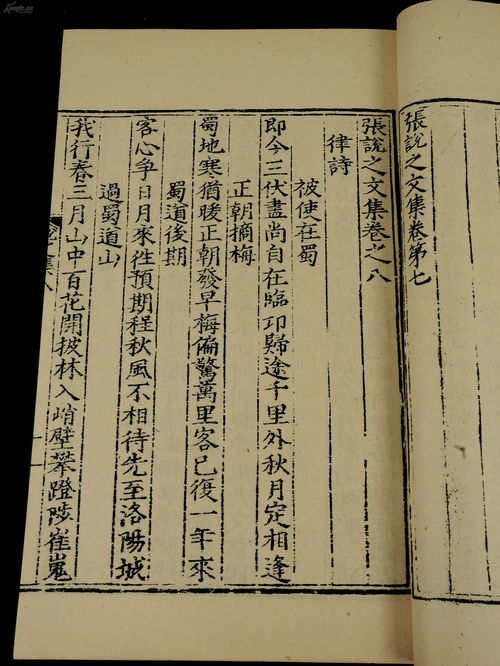 張說之文集卷第七
張說之文集卷之八
律詩
被使在蜀
即今三伏盡尚自在臨卭歸途千里外秋月定相逢
正朝摘梅
蜀地寒猶暖正朝發早梅偏驚萬里客已復一年來
蜀道後期
客心爭日月來往預期程秋風不相待先至洛陽城
過蜀道山
我行春三月山中百花開披林入峭壁攀蹬陟崔嵬